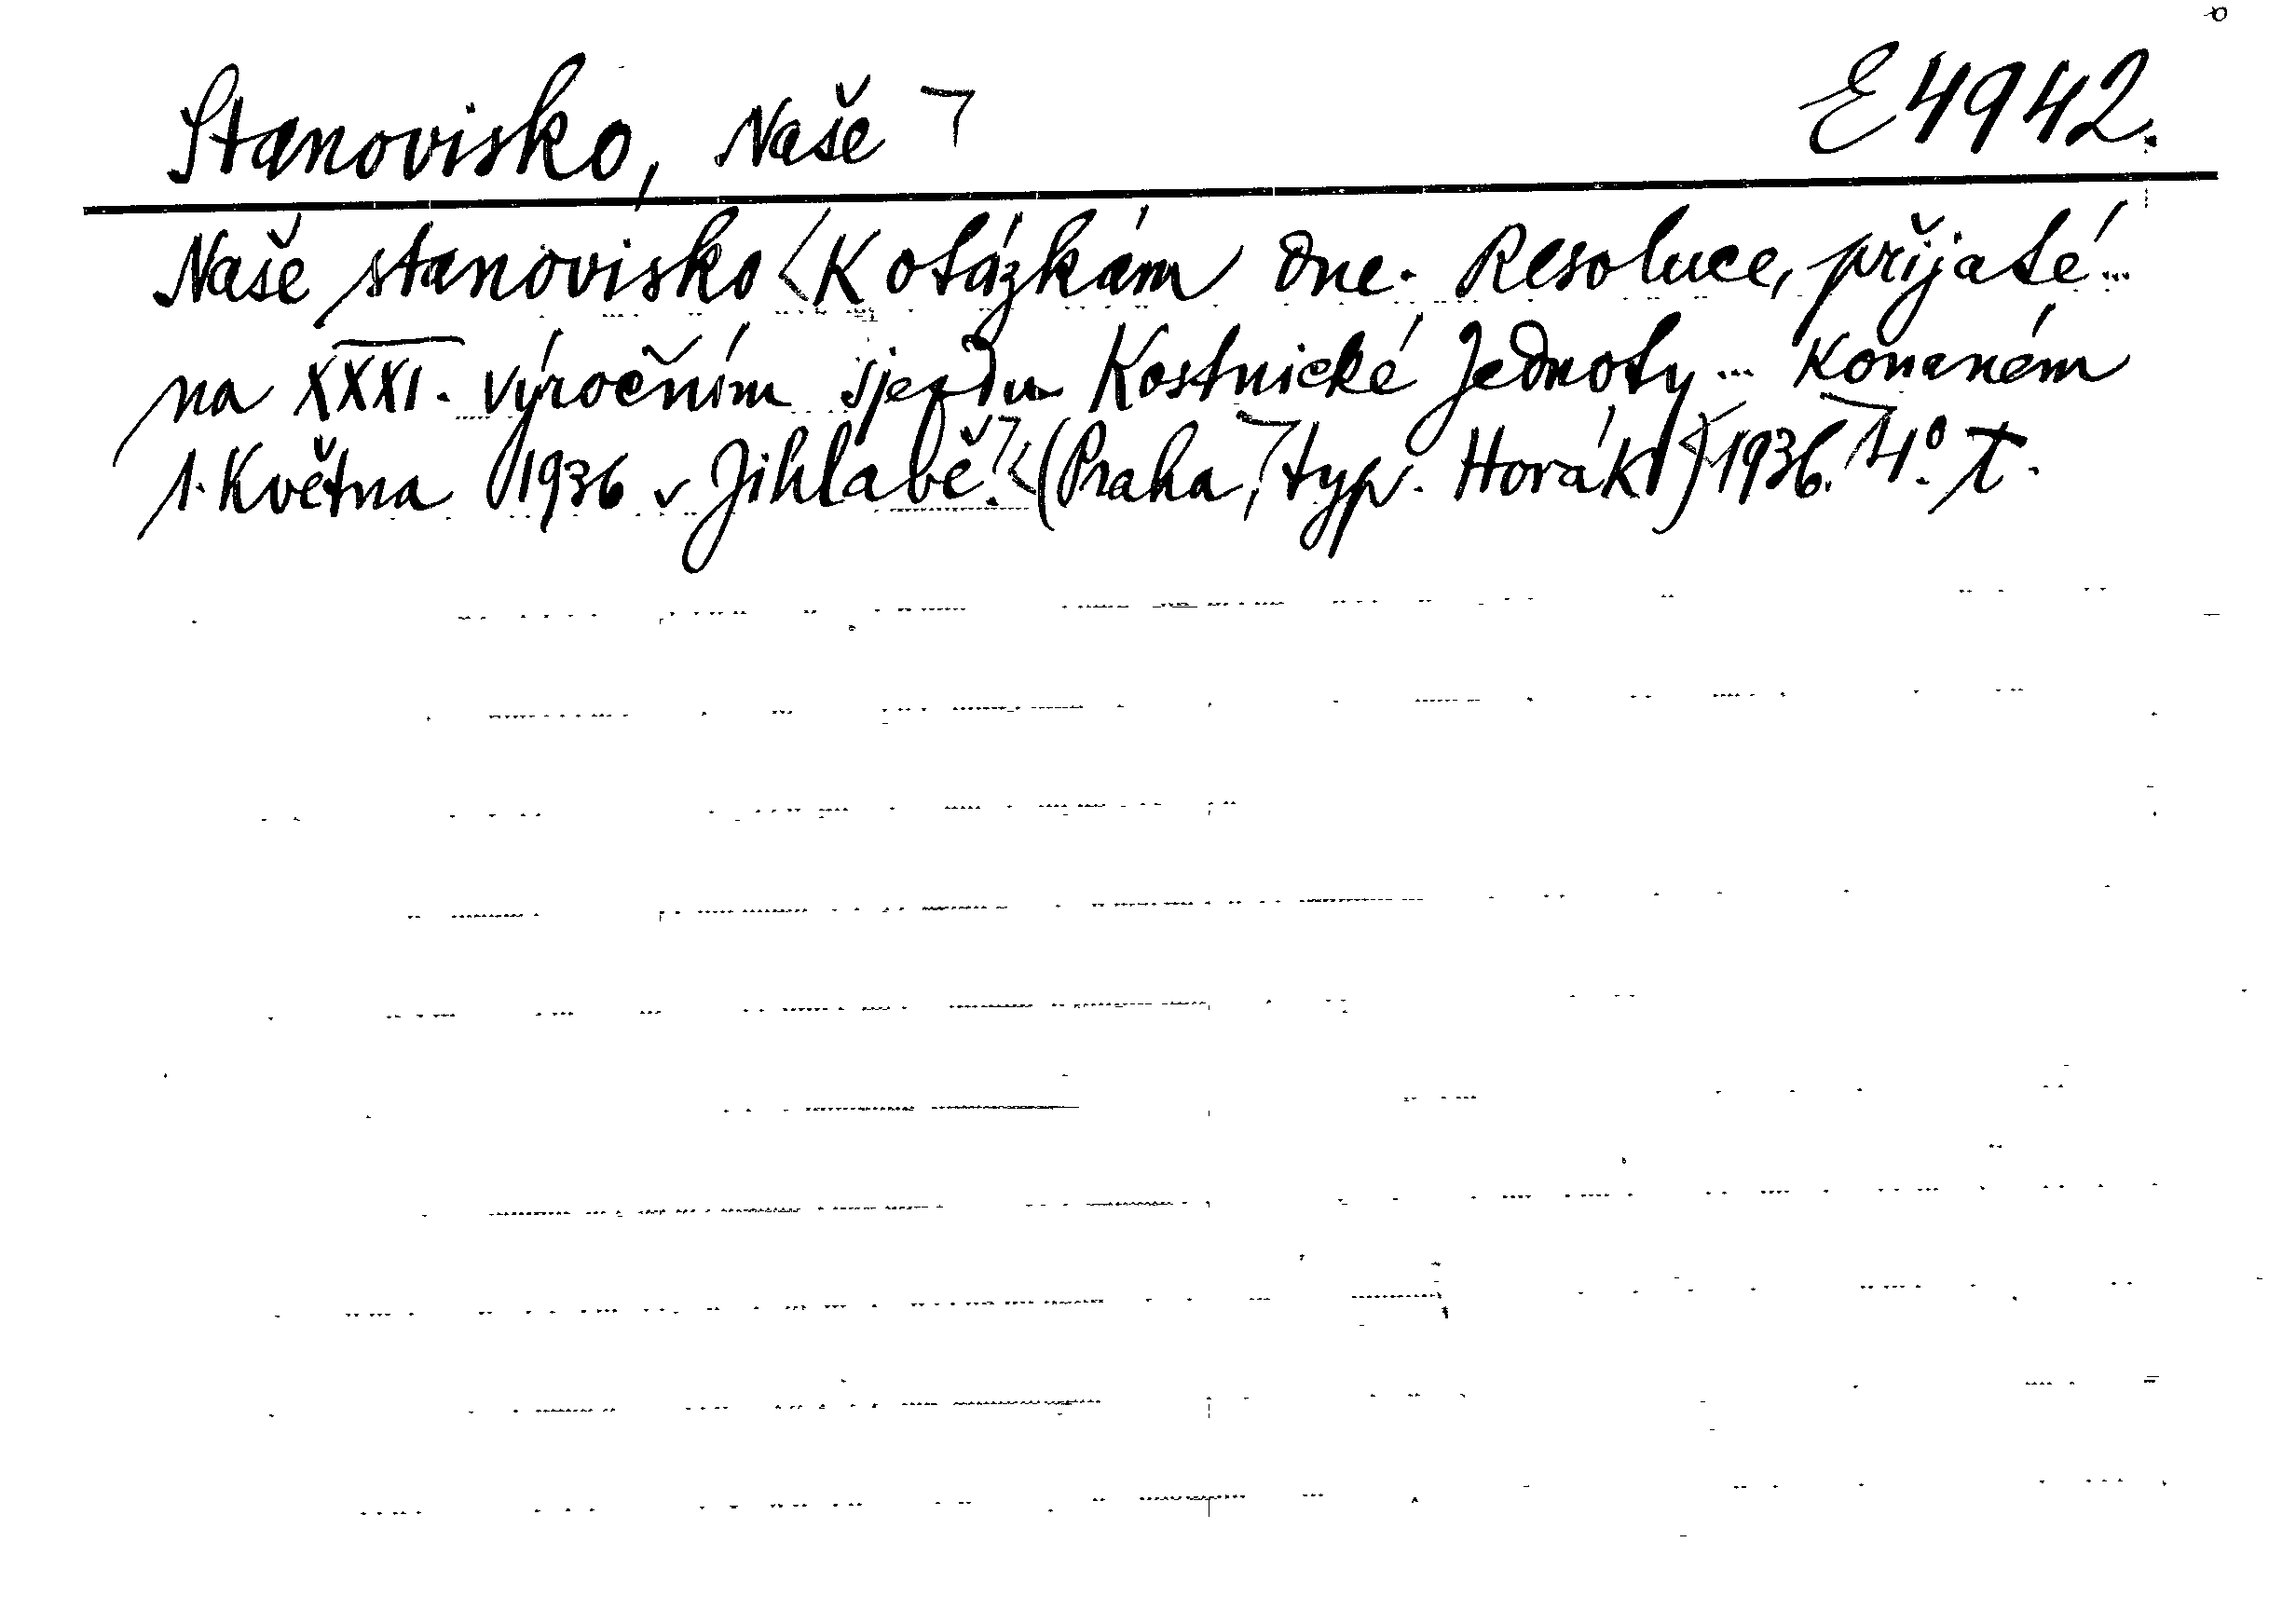 Stanovisko, Naše ¬ E 4942.
Naše stanovisko < K otázkám dne. Resoluce, přijaté...
na XXXI. výročním sjezdu Kostnické Jednoty... konaném
1. Května 1936 v Jihlavě. ¬ < (Praha, ¬ typ. Horák) < 1936. ¬ 4°. T.